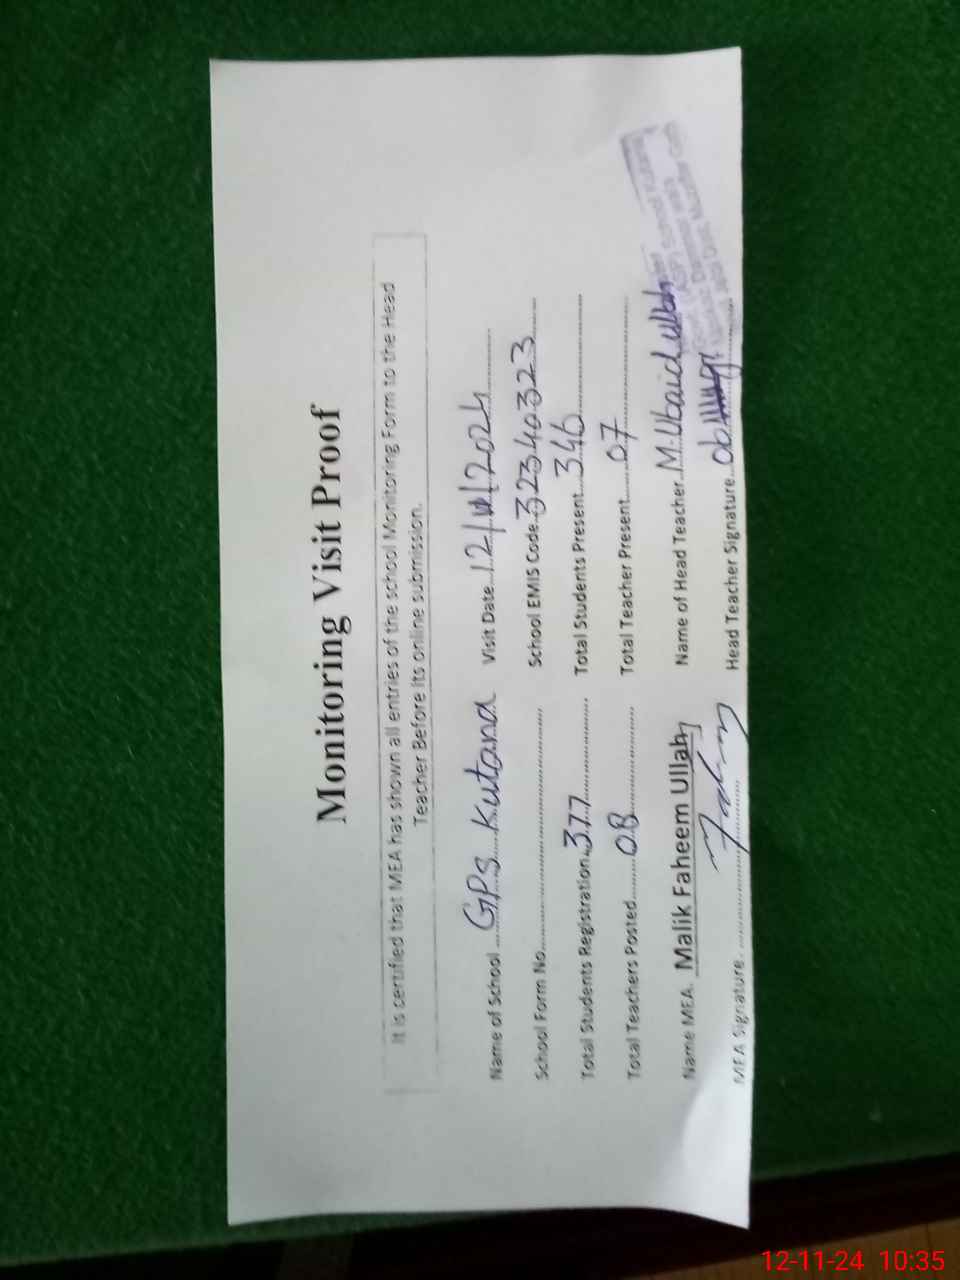 Monitoring Visit Proof
It is certified that MEA has shown all entries of the school Monitoring Form to the Head
Teacher Before its online submission.
Name of School ........GPS Kutana Visit Date...12/11/2024..........
School Form No................................................ School EMIS Code.32340323......
Total Students Registration.377.................... Total Students Present...346....................
Total Teachers Posted.......08..................... Total Teacher Present......07.....................
Name MEA. Malik Faheem Ullah Name of Head Teacher..M. Ubaid ullah
MEA Signature. ............................... Head Teacher Signature...
12-11-24 10:35